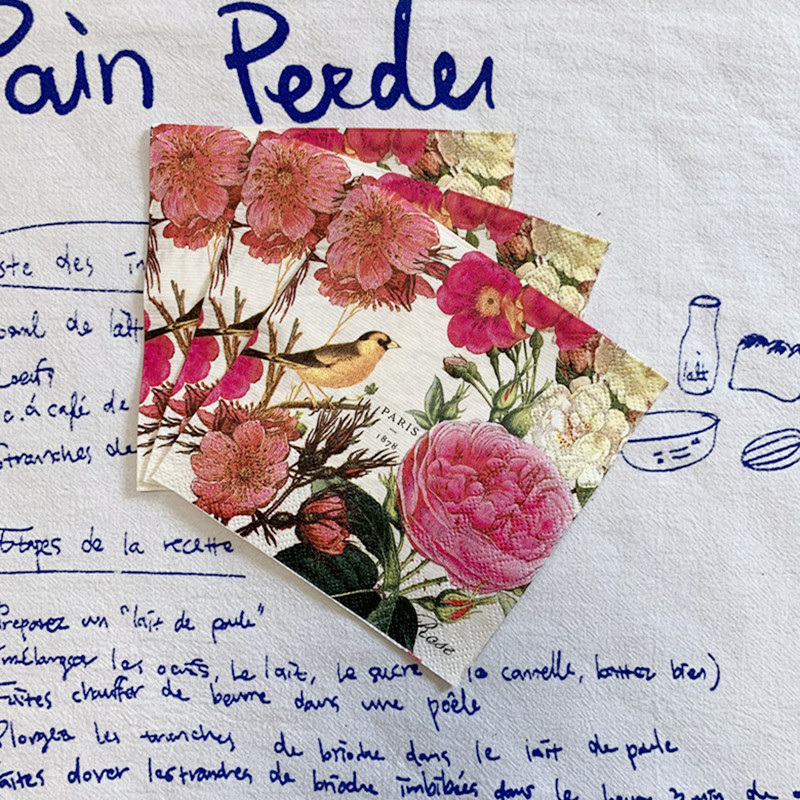 Pain Perdu
ste des in
de lait
oeufs
c. à café de
tranches de
lait
PARIS
1878
Rose
Etapes de la recette
Preparez un "lait de poule"
mélanger les oeufs, le lait, le sucre la cannelle, battez bien)
Faites chauffer de beurre dans une poêle
Plongez les tranches de brioche dans le lait de poule
aites dorer les tranches de brioche imbibées dans le